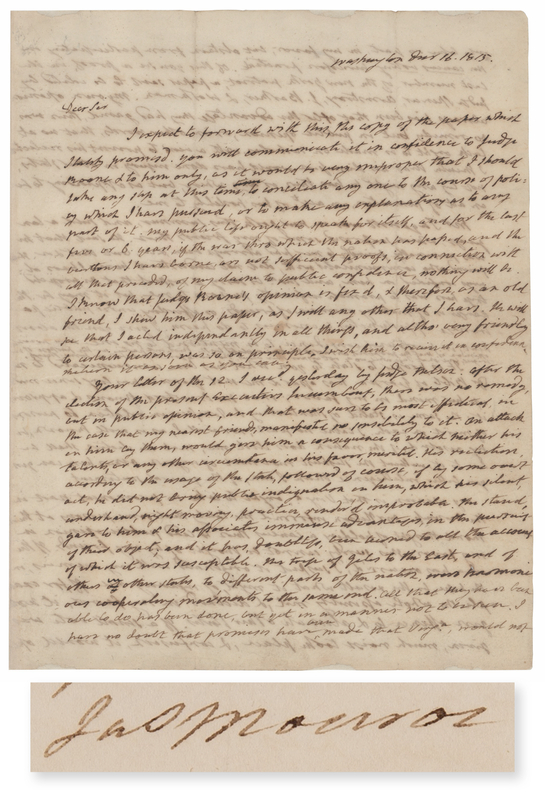 Washington Decr 16. 1815.
Dear Sir
I expect to forward with this, the copy of the paper which
I lately promised. you will communicate it in confidence to Judge
Roane & to him only, as it would be very improper that I should
take any step at this time to conciliate any one to the course of poli-
cy which I have pursued or to make any explanation as to any
part of it. my public life ought to speak for itself, and for the last
five or 6. years, if the war thro which the nation has passed, and the
I have borne, are not sufficient proofs, in connection with
all that preceded, of my claim to public confidence, nothing will be.
I know that Judge Roane's opinion is fixd, & therefore as an old
friend, I shew him this paper, as I will any other that I have. He will
see that I acted independantly in all things, and altho very friendly
to certain persons, was so on principle. I wish him to receive it in confidence,
as you can.
Your letter of the 12. I recd. yesterday by Judge Nelson. after the
election of the present Executive incumbent, there was no remedy,
but in public opinion, and that was sure to be most effectual in
the case that my nearest friends manifested no sensibility to it. An attack
on him by them, would give him a consequence to which neither his
talents, or any other circumstance in his favor, merited. His reelection,
according to the usage of the State, followed of course, if by some overt
act, he did not bring public indignation on him, which his silent
underhand, night moving, practice, renderd improbable. This stand,
gave to him & his associates, immense advantages, in the pursuit
of their object, and it has, doubtless, been turned to all the account
of which it was susceptible. The trip of Giles to the East, and of
others to other states, to different parts of the nation, were harmoni-
ous cooperating movements to the same end. all that they have been
able to do has been done, but yet in a manner not to . I
have no doubt that promises have been made that Virga., would not
Jas Monroe